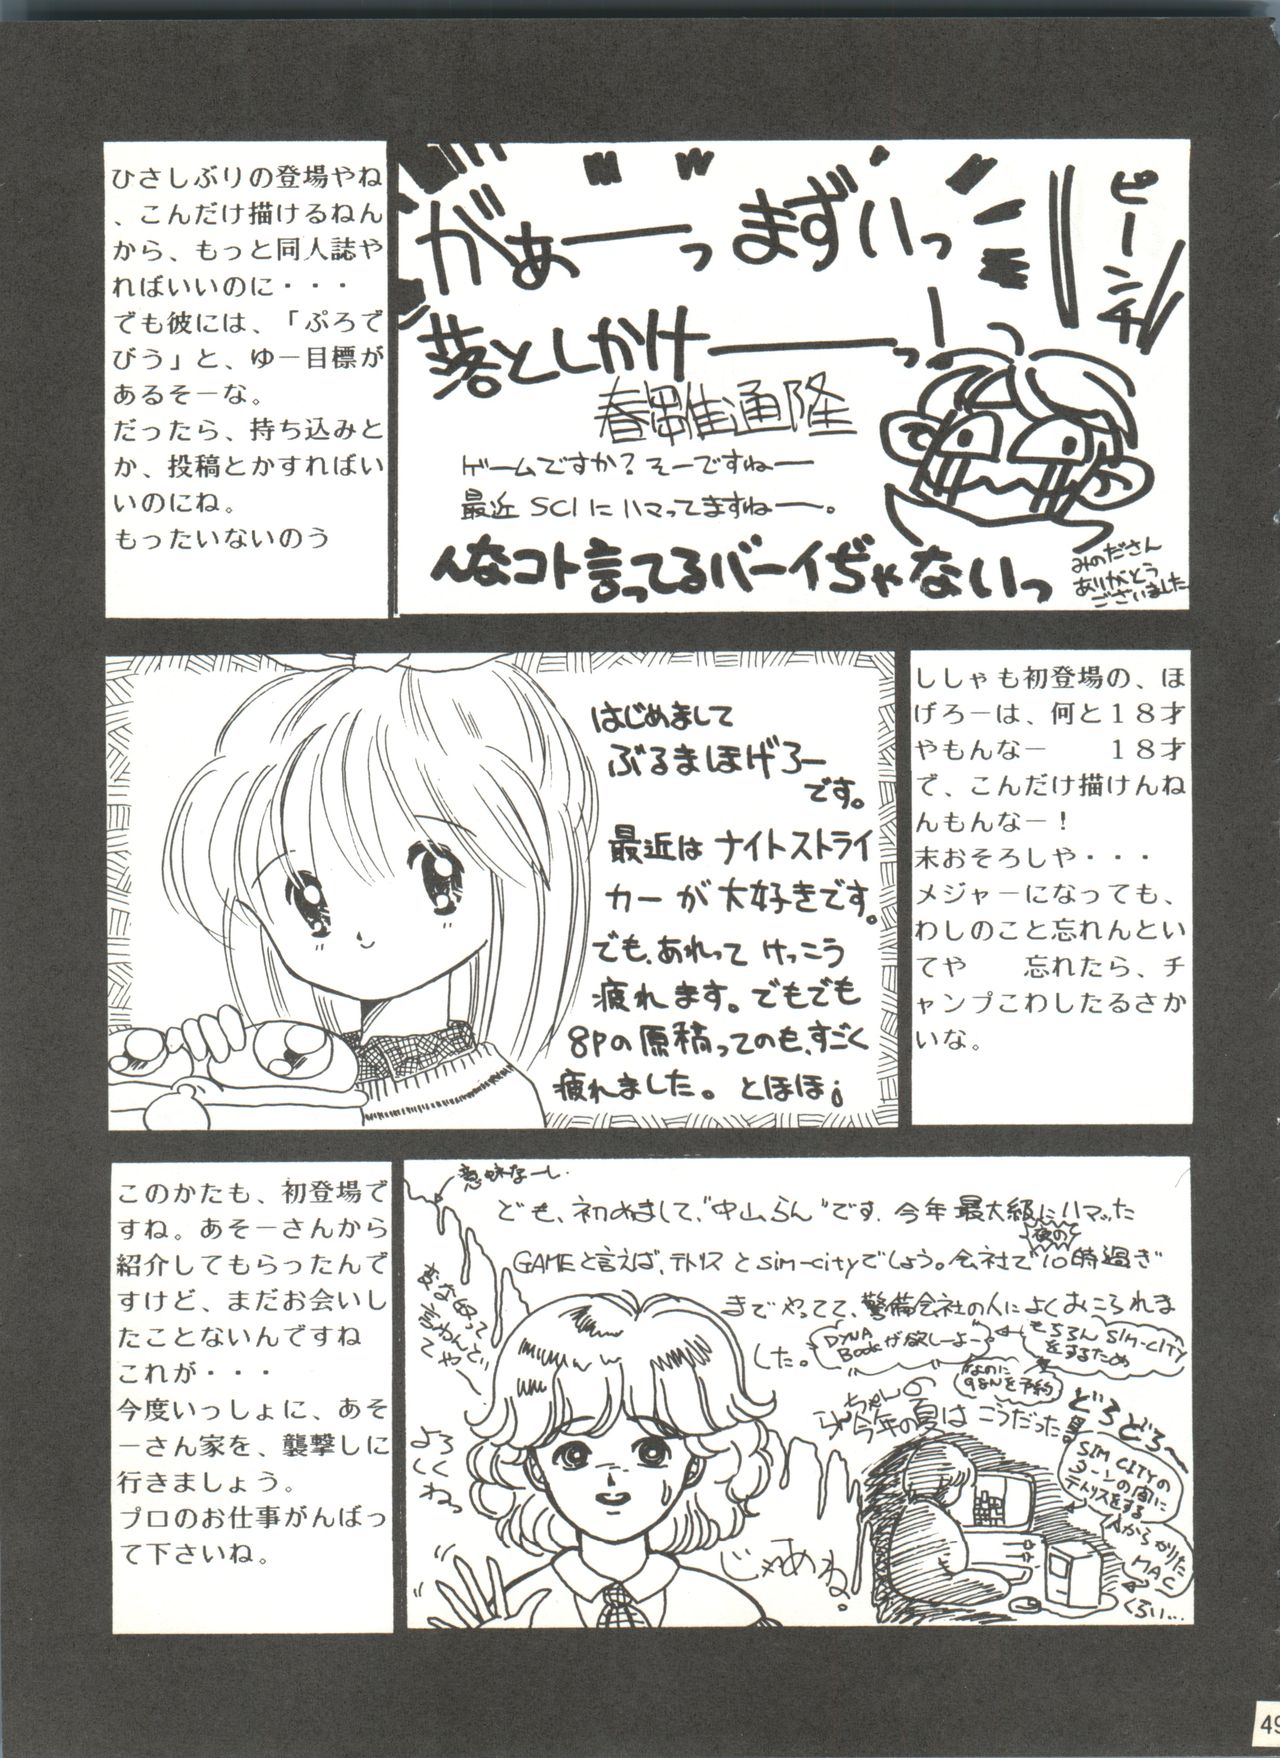 ひさしぶりの登場やね
、こんだけ描けるねん
から、もっと同人誌や
ればいいのに・・・
でも彼には、「ぷろで
びう」と、ゆー目標が
あるそーな。
だったら、持ち込みと
か、投稿とかすればい
いのにね。
もったいないのう
がぁーーっ まずいっ
ピーンチ
落としかけーーーっ!
通隆
ゲームですか?そーですねー
最近 SCIにハマってますねー。
んなコト言ってるバーイぢゃないっ
みのださん
ありがとう
ございました
はじめまして
ぶるまほげろー
です。
最近は ナイトストライ
カー が 大好きです。
でも、あれって けっこう
疲れます。でもでも
8Pの原稿ってのも、すごく
疲れました。 とほほ¡
ししゃも初登場の、ほ
げろーは、何と18才
やもんなー  18才
で、こんだけ描けんね
んもんなー!
末おそろしや・・・
メジャーになっても、
わしのこと忘れんとい
てや  忘れたら、チ
ャンプこわしたるさか
いな。
このかたも、初登場で
すね。あそーさんから
紹介してもらったんで
すけど、まだお会いし
たことないんですね
これが・・・
今度いっしょに、あそ
ーさん家を、襲撃しに
行きましょう。
プロのお仕事がんばっ
て下さいね。
意味なーし.
ども、初めまして、"中山らん"です. 今年最大級にハマッた
GAMEと言えば、テトリスとsim-cityでしょう。会社で
夜の
10時過ぎ
までやってて、警備会社の人によくおこられま
した。
DYNA
Bookが欲しーよー
もちろんSIM-CITY
をするため
なのに
98Nを予約
変な奴って
言わんで
てやー
よろ
しくねっ
らんちゃんの
今年の夏は こうだった
どろどろ〜
SIM CITYの
ターンの間に
テトリスをする
Aからかりた
MAC
くらい…
じゃあね。
49